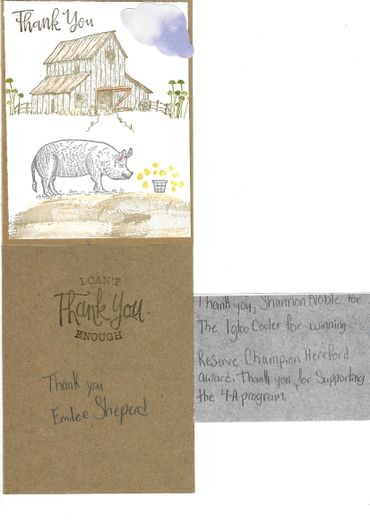 Thank You
I CAN'T
Thank You
ENOUGH
Thank you
Emilee Sheperd
Thank you, Shannon Noble for
The Igloo Cooler for winning
Reserve Champion Hereford
award. Thank you for supporting
the 4-H program.